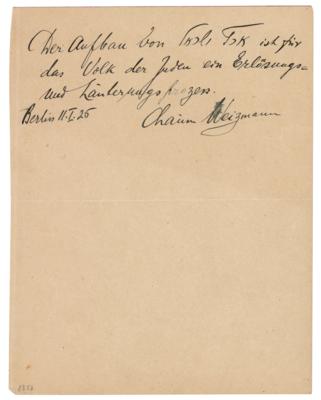 Der Aufbau von ארץ ישראל ist für
das Volk der Juden ein Erlösungs=
und Läuterungsprozess.
Berlin 11.I.25
Chaim Weizmann